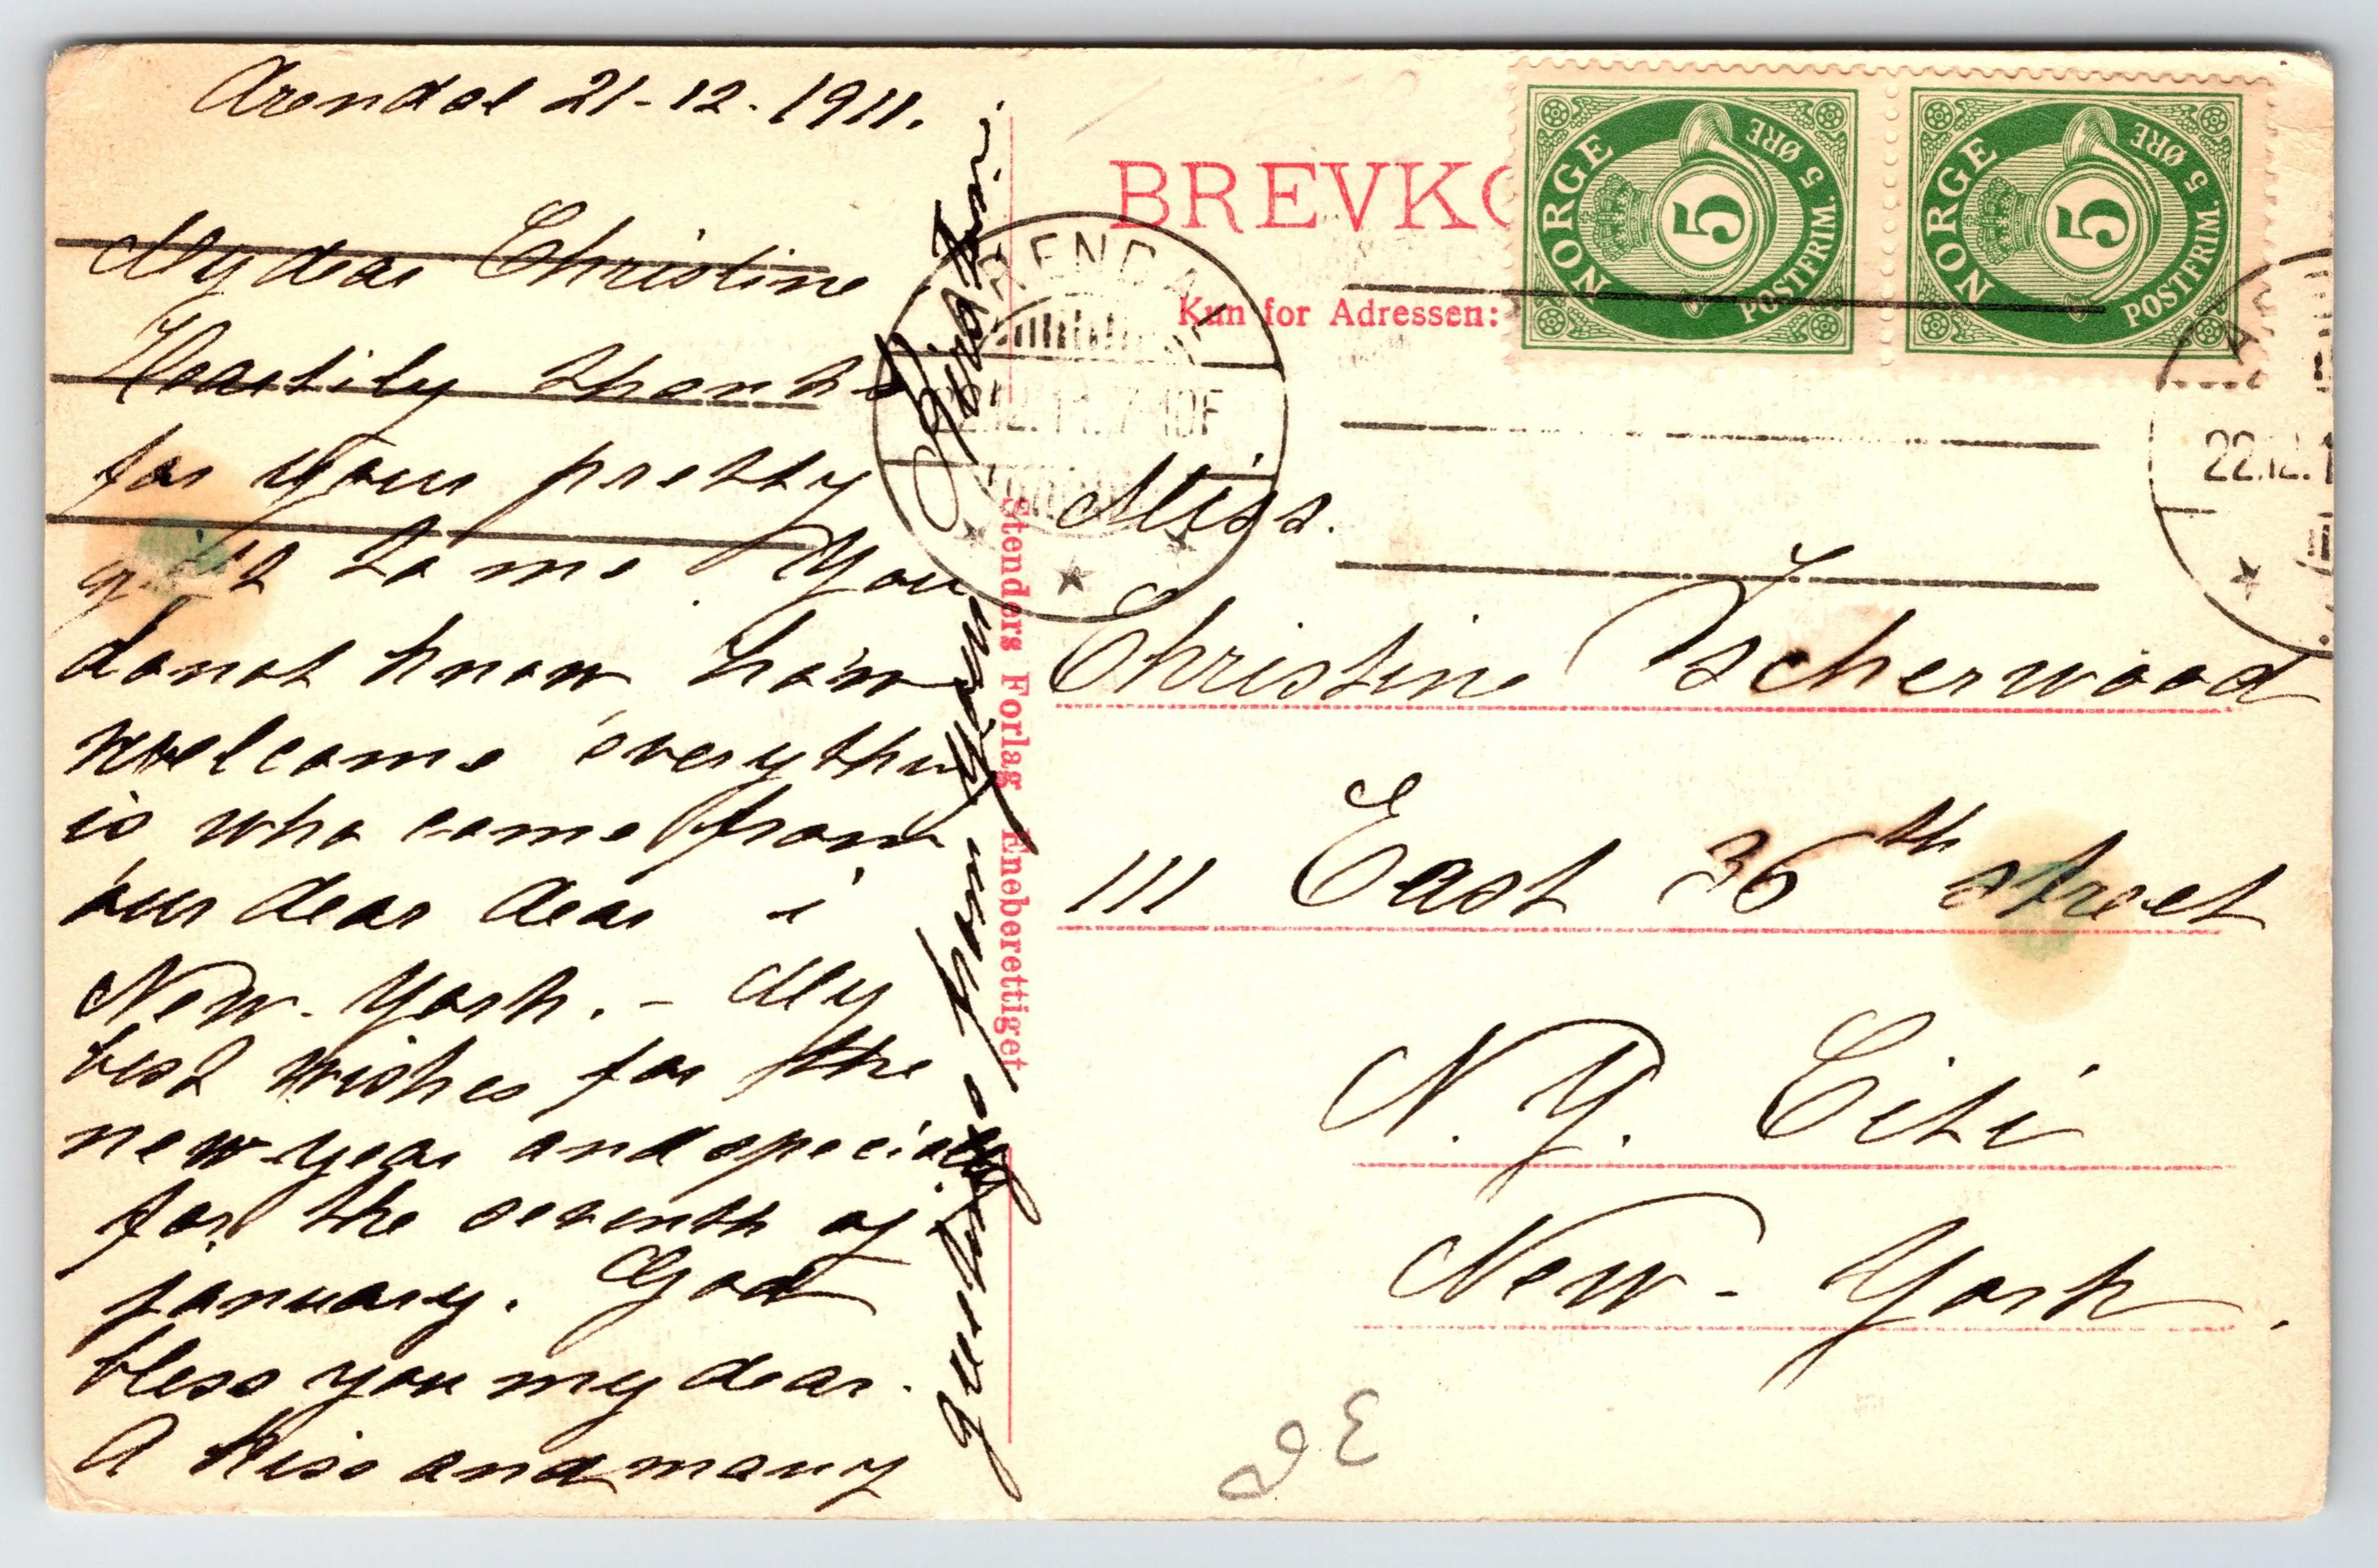 Arendal 21-12-1911.
My dear Christine
Heartily thanks
for your pretty
gift to me. You
do not know how
welcome everything
is who come from
our dear dear i
New-York. - My
best wishes for the
new-year and specialy
for the seventh of
january. God
bless you my dear.
A kiss and many
from your
BREVKO
Kun for Adressen:
NORGE
5
POSTFRIM. 5 ØRE
NORGE
5
POSTFRIM. 5 ØRE
ARENDAL
22.12.11. 7-10F
22.12.1
Stenders Forlag Eneberettiget
Miss.
Christine Ischerwood
111 East 36th street
N.Y. Citi
New-York.